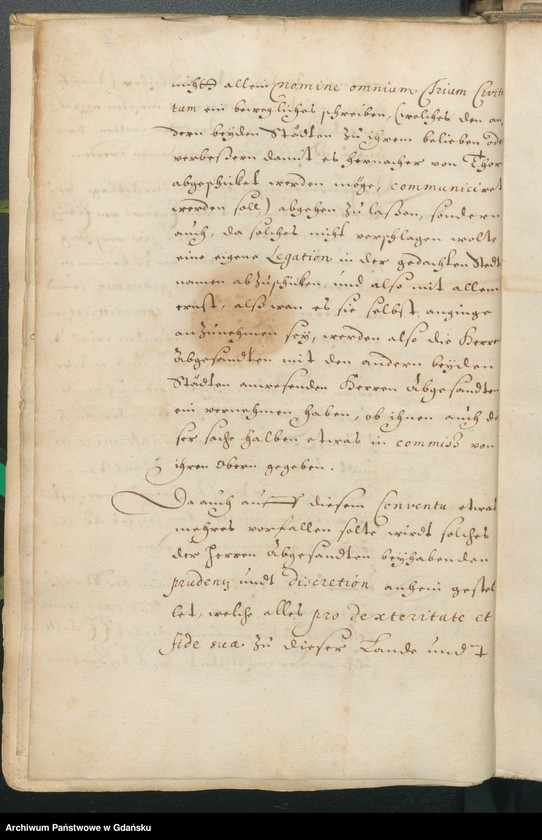 nicht allein nomine omnium trium Civita
tum ein bewegliches schreiben, (welches den an
dern beyden Städten zu ihrem belieben od
verbeßern damit es hernacher von Thor
abgeschicket werden möge, communiciret
werden soll,) abgehen zu laßen, sondern
auch, da solches nicht verschlagen wolte
eine eigene Legation in der gedachten Stedt
namen abzuschicken, und also mit allem
ernst, alß wan es sie selbst anginge
anzunehmen sey, werden also die Herre
Abgesandten mit den andern beyden
Städten anwesenden Herren Abgesandten
ein vernehmen haben, ob ihnen auch di
ser sache halben etwas in commiss von
ihren Obern gegeben.
Da auch auf diesem Conventu etwas
mehres vorfallen solte wirdt solches
der Herren Abgesandten beyhabenden
prudenz undt discretion anheim gestel
let, welche alles pro dexteritate et
fide sua zu dieser Lande und
Archiwum Państwowe w Gdańsku